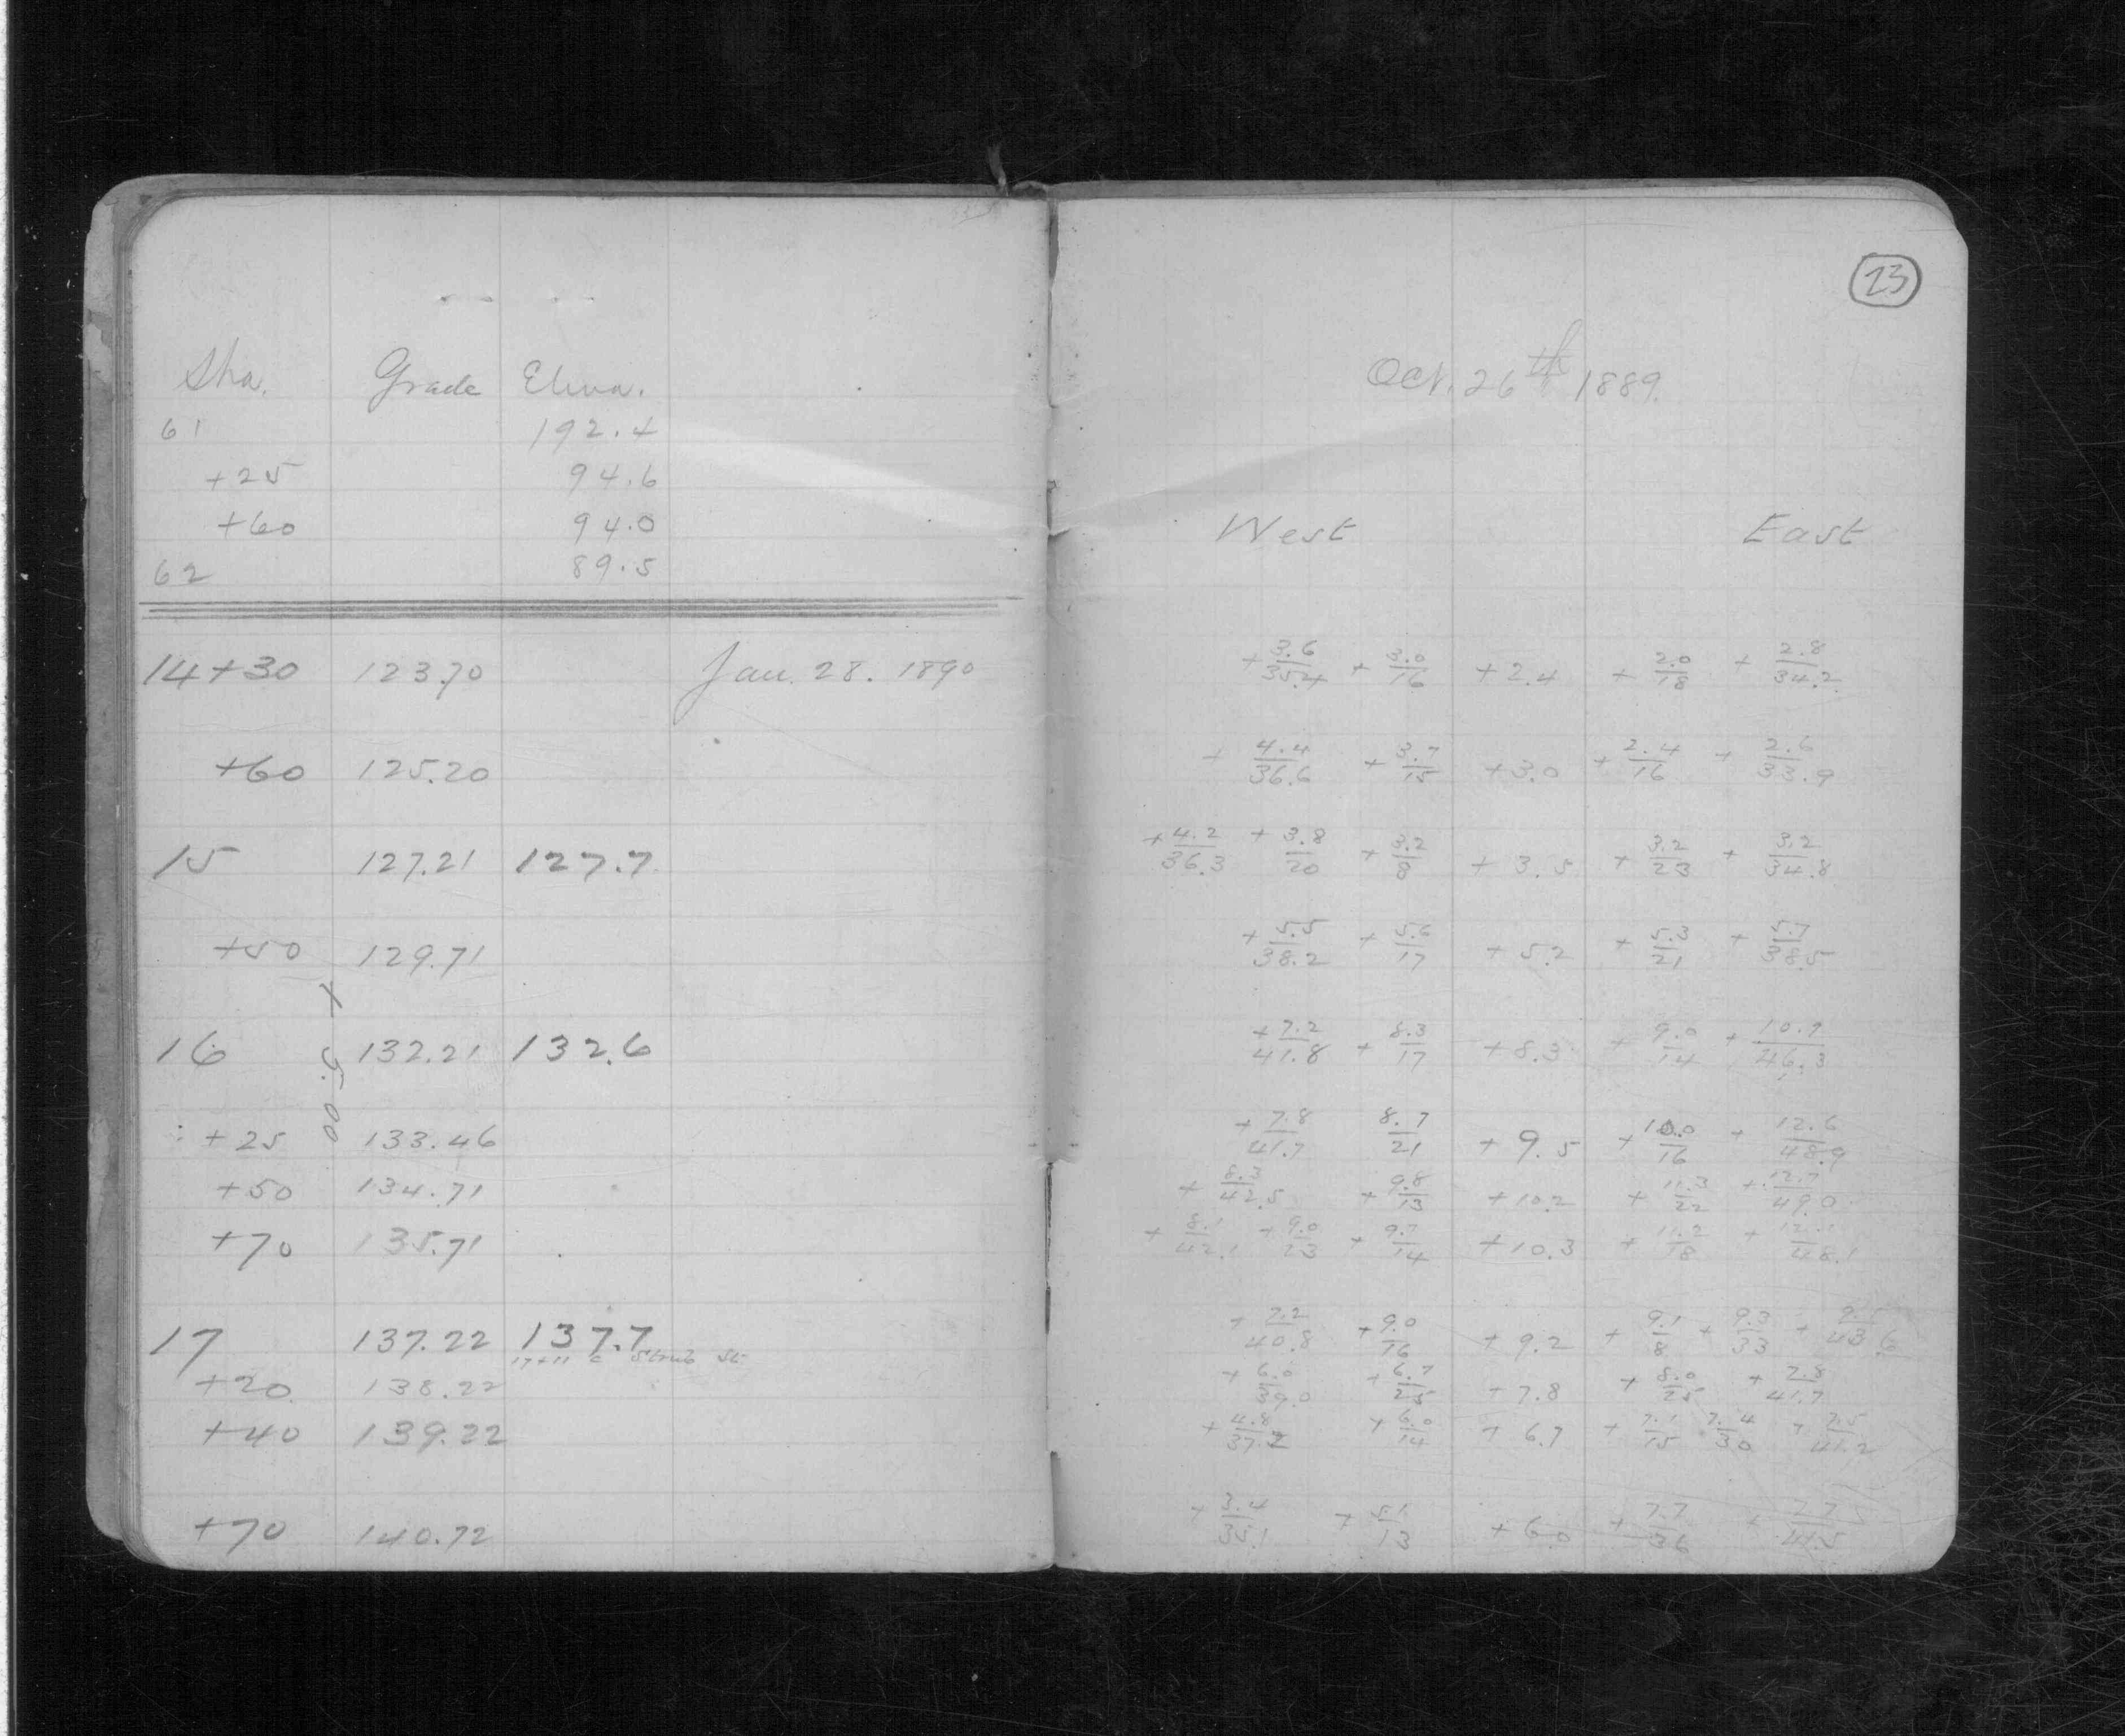 23
Sta. Grade Eleva.
Oct. 26th 1889.
61 192.4
+25 94.6
+60 94.0
West East
62 89.5
14+30 123.70 Jan. 28. 1890
+3.6/35.4 +3.0/16 +2.4 +2.0/18 +2.8/34.2
+60 125.20
+4.4/36.6 +3.7/15 +3.0 +2.4/16 +2.6/33.9
15 127.21 127.7
+4.2/36.3 +3.8/20 +3.2/8 +3.5 +3.2/23 +3.2/34.8
+50 129.71
+5.5/38.2 +5.6/17 +5.2 +5.3/21 +5.7/38.5
+ 5.00
16 132.21 132.6
+7.2/41.8 +8.3/17 +8.3 +9.0/14 +10.9/46.3
+25 133.46
+7.8/41.7 8.7/21 +9.5 +10.0/16 +12.6/48.9
+50 134.71
+8.3/42.5 +9.8/13 +10.2 +11.3/22 +12.7/49.0
+70 135.71
+8.1/42.1 +9.0/23 +9.7/14 +10.3 +11.2/18 +48.1
17 137.22 137.7
+7.2/40.8 +9.0/16 +9.2 +9.1/8 +9.3/33 +43.6
17+11 St.
+20 138.22
+6.0/39.0 +6.7/25 +7.8 +8.0/25 +7.8/41.7
+40 139.22
+4.8/37.2 +6.0/14 +6.7 +7.1/15 7.4/30 +7.5/41.2
+70 140.72
+3.4/35.1 +5.1/13 +6.0 +7.7/36 +7.7/41.5